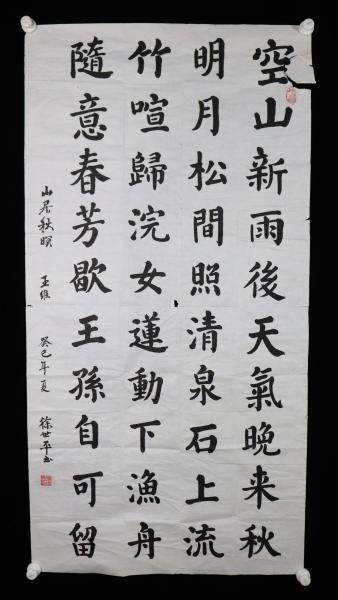 空山新雨後天氣晚来秋
明月松間照清泉石上流
竹喧歸浣女蓮動下漁舟
隨意春芳歇王孫自可留
山居秋暝 王維 癸巳年夏 徐世平书